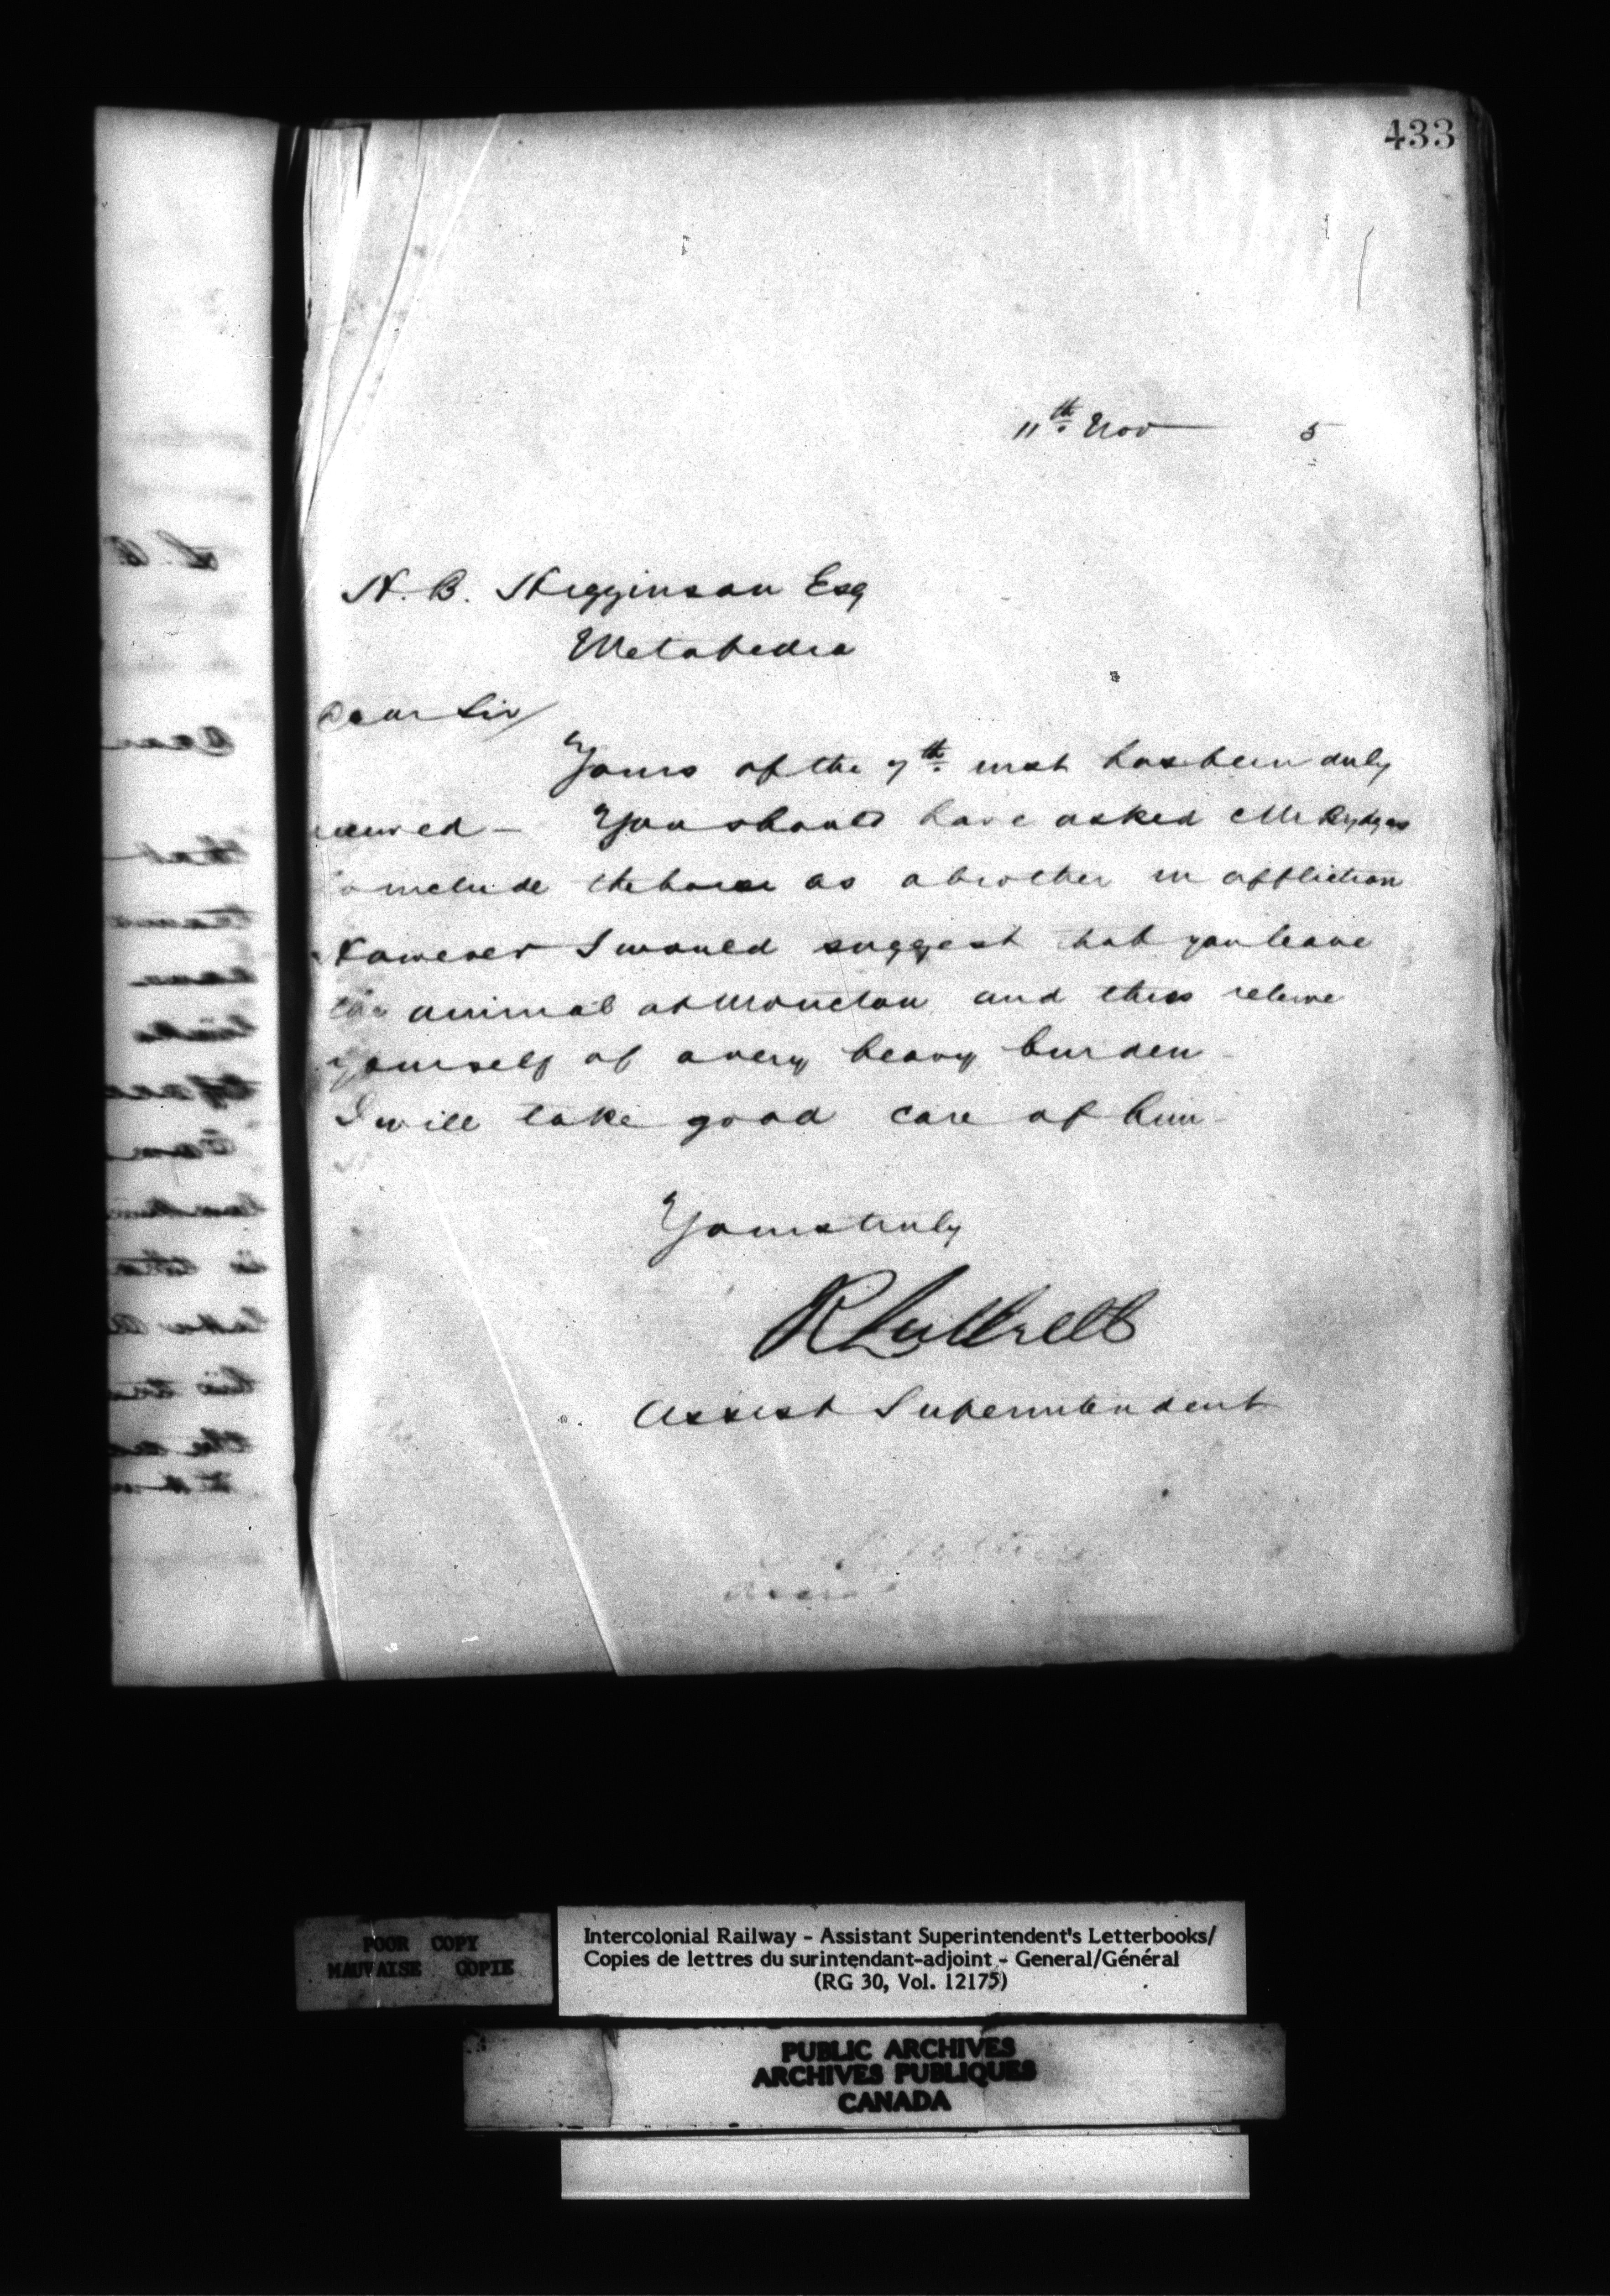 433
11th Nov 5
H. B. Higginson Esq
Metapedia
Dear Sir/
Yours of the 7th inst has been duly
received - You should have asked Mr Brydges
to include the horse as a brother in affliction
However I would suggest that you leave
the animal at Moncton and thus relieve
yourself of a very heavy burden -
I will take good care of him -
Yours truly
R Luttrell
Assist Superintendent
POOR COPY
MAUVAISE COPIE
Intercolonial Railway - Assistant Superintendent's Letterbooks/
Copies de lettres du surintendant-adjoint - General/Général
(RG 30, Vol. 12175)
PUBLIC ARCHIVES
ARCHIVES PUBLIQUES
CANADA